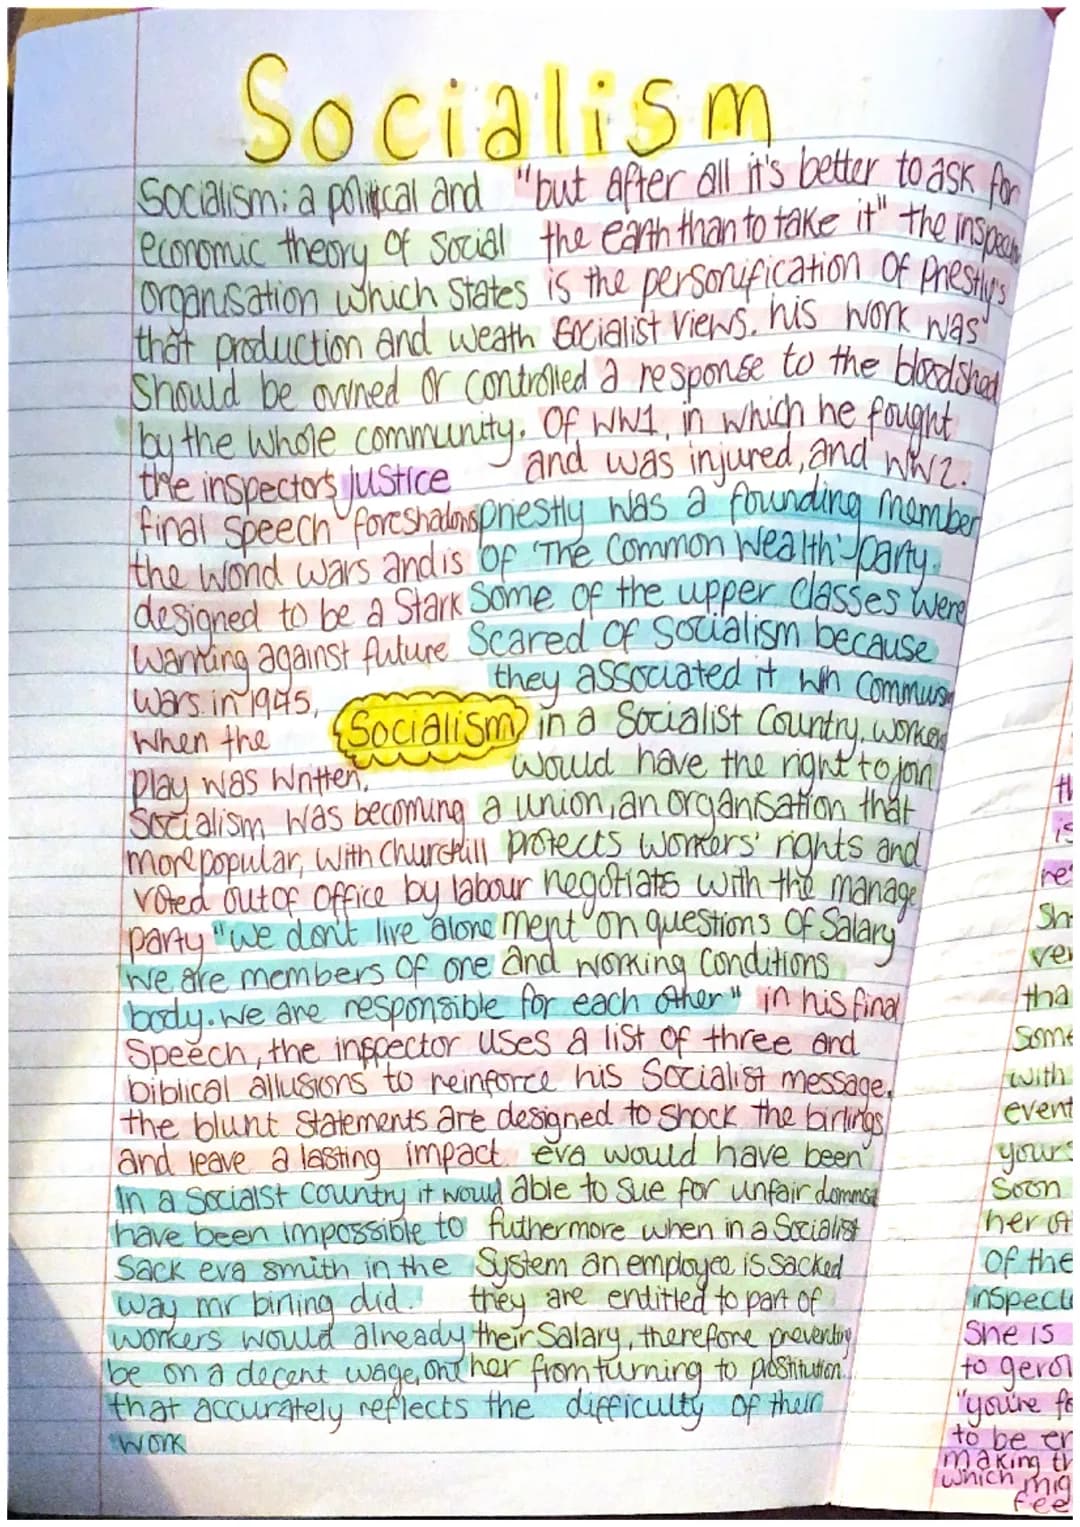 Socialism
Socialism: a political and
economic theory of social
organisation which states
that production and weath
should be owned or controlled
by the whole community.
"but after all it's better to ask for
the earth than to take it" the inspector
is the personification of priestly's
socialist views. his work was
a response to the bloodshed
of WW1, in which he fought
and was injured, and WW2.
the inspectors justice
final speech foreshadows
the world wars and is
designed to be a stark
warning against future
wars. in 1945,
when the
play was written,
Socialism was becoming
more popular, with churchill
voted out of office by labour
party "we don't live alone
we are members of one
body. we are responsible for each other" in his final
speech, the inspector uses a list of three and
biblical allusions to reinforce his socialist message.
the blunt statements are designed to shock the birlings
and leave a lasting impact.
priestly was a founding member
of 'The Common Wealth' party.
some of the upper classes were
scared of socialism because
they associated it wih
Socialism
in a socialist country, workers
would have the right to join
a union, an organisation that
protects workers' rights and
negotiats with the manage
ment on questions of salary
and working conditions
In a socialst country it would
have been impossible to
sack eva smith in the
way mr birling did.
workers would already
be on a decent wage, one
that accurately reflects the difficulty of their
work
eva would have been
able to sue for unfair
futhermore when in a socialist
system an employee is sacked
they are entitled to part of
their salary, therefore preventing
her from turning to prostitution.
th
is
re
Sh
ver
tha
some
with
event
yours
Soon
her of
of the
inspect
She is
to gerol
"you're fo
to be er
making th
which mig
fee